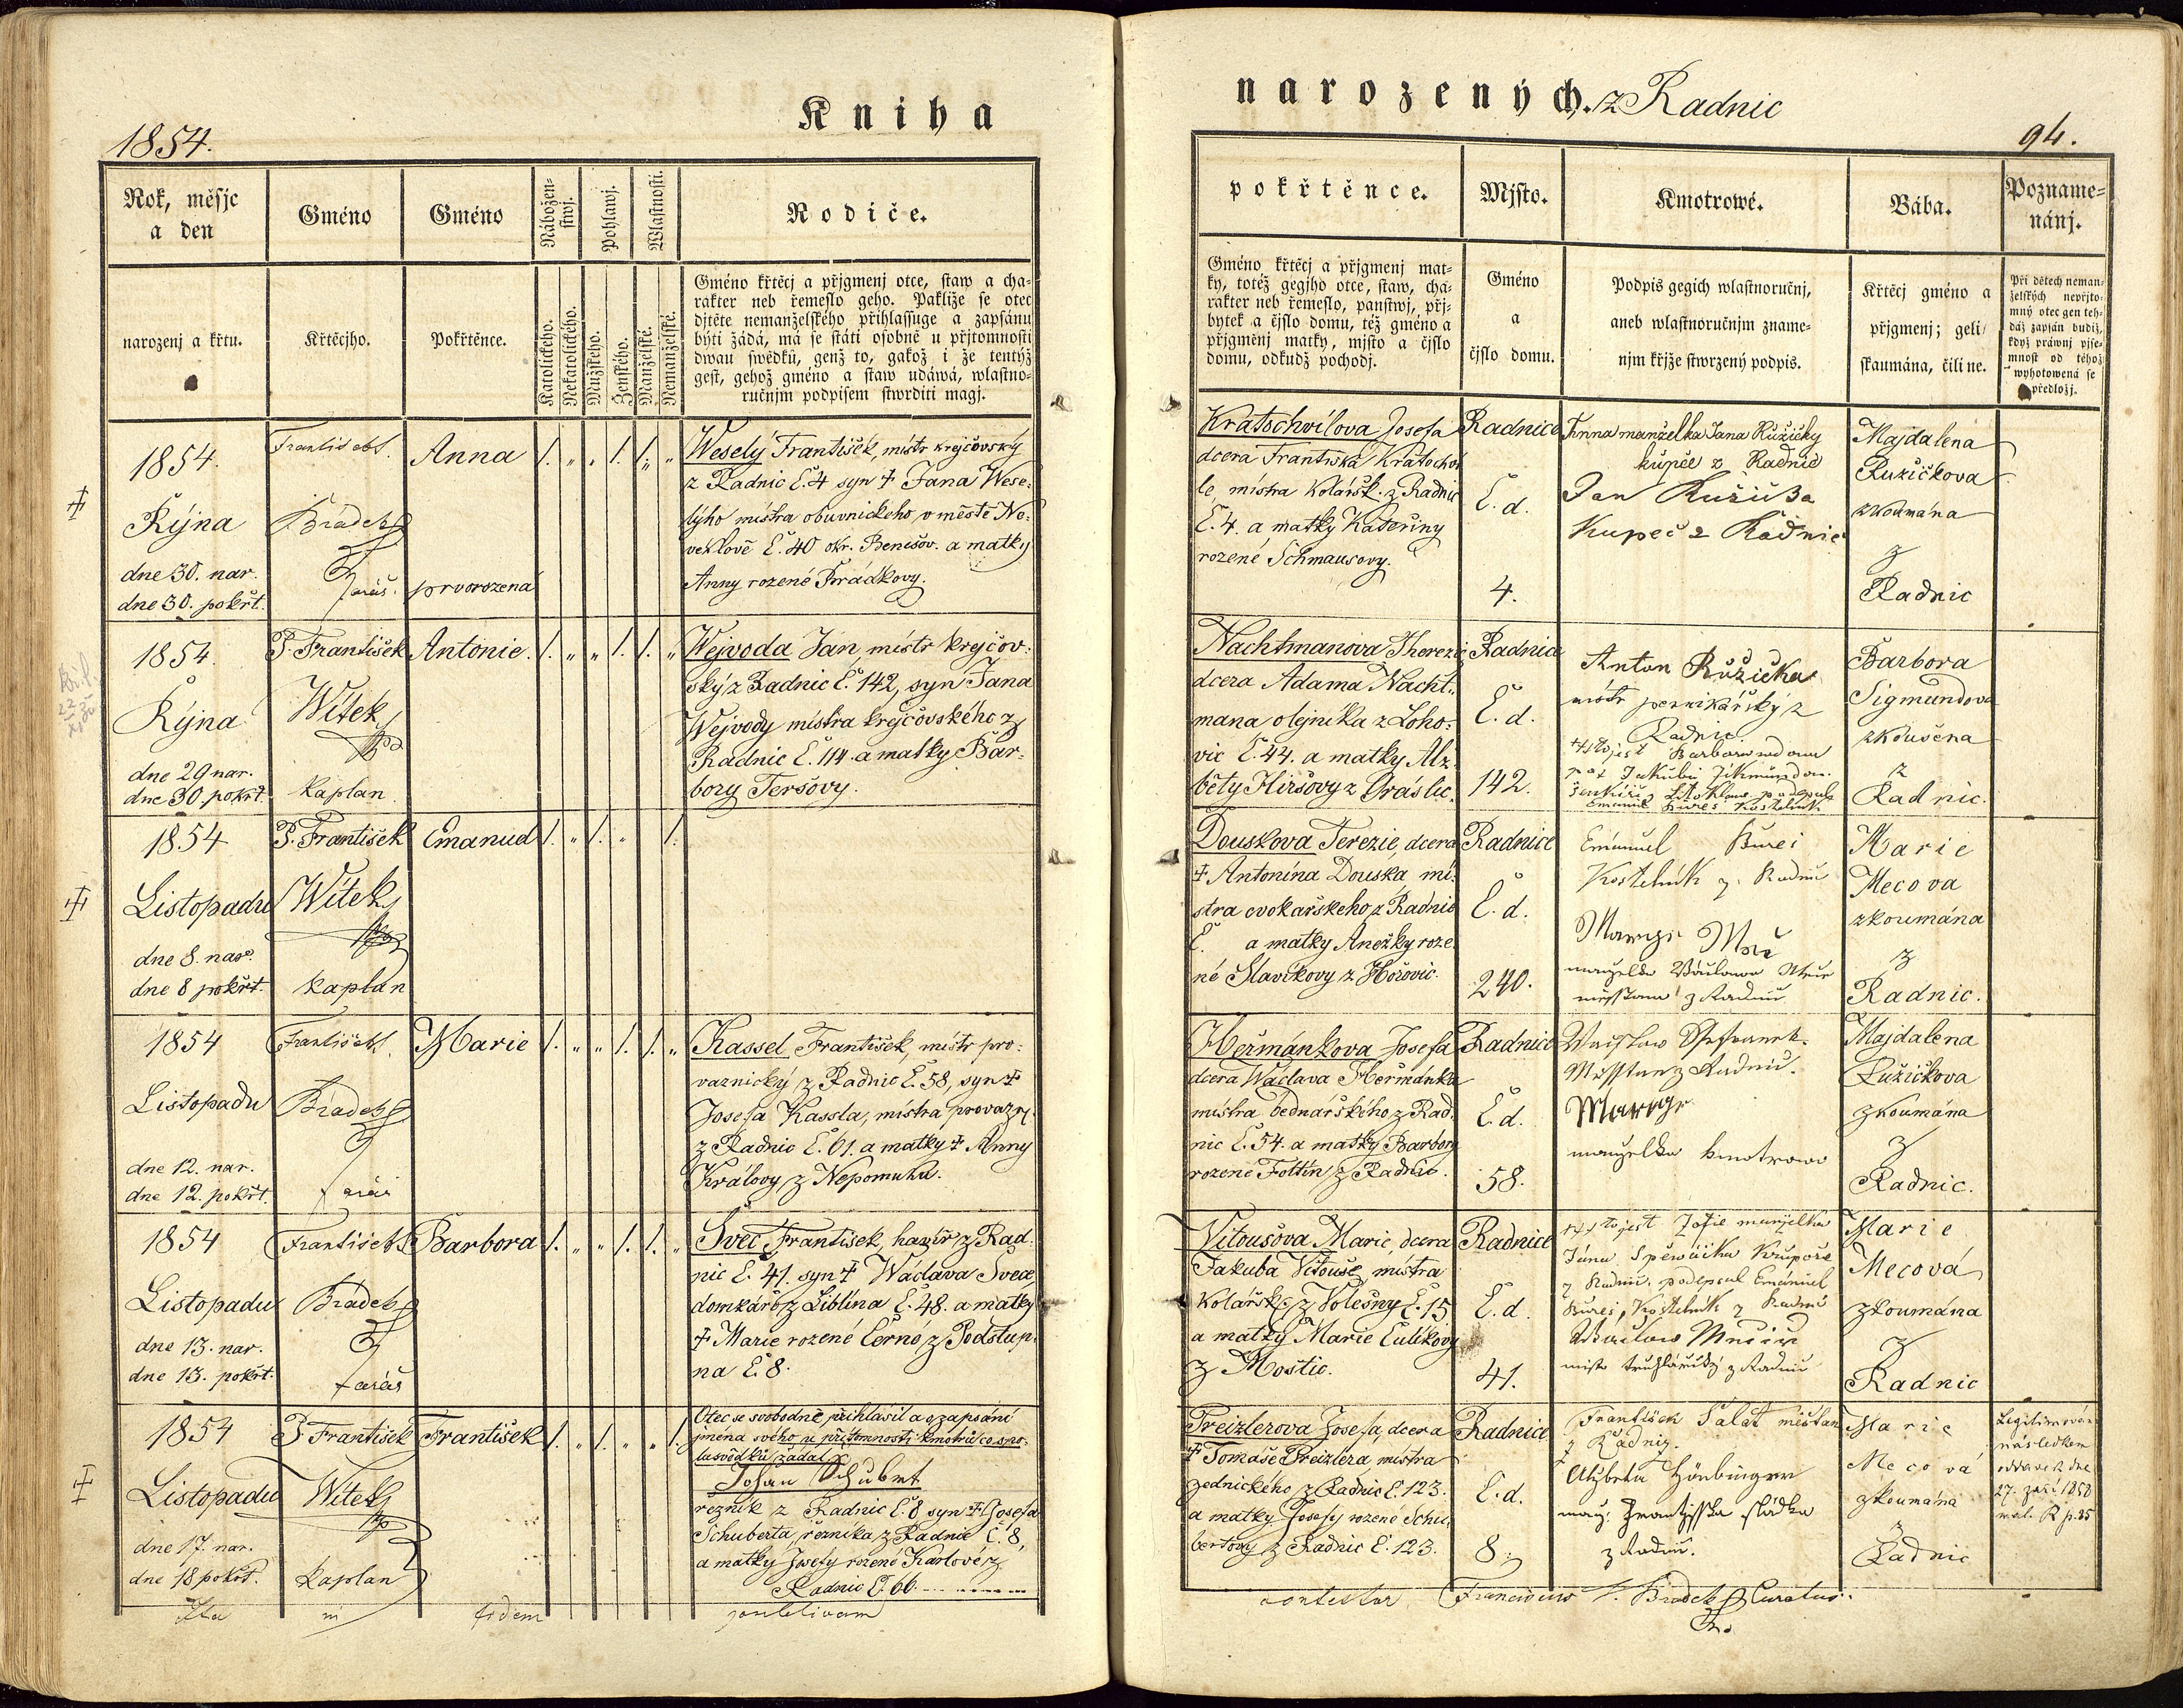 Kniha
1854.
Rok, měsjc
a den
Gméno
Gméno
Nábožen-
stwj.
Pohlawj.
Wlastnosti.
Rodiče.
narozenj a křtu.
Křtěcjho.
Pokřtěnce.
Katolického.
Nekatolického.
Mužského.
Ženského.
Manželské.
Nemanželské.
Gméno křtěcj a přjgmenj otce, staw a cha-
rakter neb řemeslo geho. Pakliže se otec
djtěte nemanželského přihlassuge a zapsánu
býti žádá, má se státi osobně u přjtomnosti
dwau swědků, genž to, gakož i že tentýž
gest, gehož gméno a staw udáwá, wlastno-
ručnjm podpisem stwrditi magj.
1854.
Října
dne 30. nar.
dne 30. pokřt.
Brádek
farář.
Anna
prvorozená
Weselý František, mistr krejčovský
z Radnic Č. 4 syn † Jana Wese-
lýho mistra obuvnického v městě Ne-
veklově Č. 40 okr. Benešov. a matky
Anny rozené Frádkovy.
1854.
Října
dne 29 nar.
dne 30. pokřt.
P. František
Witek
kaplan
Antonie.
Wejvoda Jan, mistr krejčov-
ský z Radnic Č. 142, syn Jana
Wejvody mistra krejčovského z
Radnic Č. 114 a matky Bar-
bory Teršovy.
1854
Listopadu
dne 8. nar.
dne 8 pokřt.
P. František
Witek
kaplan
Emanuel
1854
Listopadu
dne 12. nar.
dne 12. pokřt.
František
Brádek
farář
Marie
Kassel František, mistr pro-
vaznický z Radnic Č. 58, syn †
Josefa Kassla, mistra provazn.
z Radnic Č. 61. a matky † Anny
Královy z Nepomuku.
1854
Listopadu
dne 13. nar.
dne 13. pokřt.
František
Brádek
farář
Barbora
Švec František, havíř z Rad-
nic Č. 41. syn † Wáclava Švece
domkáře z Liblína Č. 48. a matky
† Marie rozené Černé z Podstup-
na Č. 8.
1854
Listopadu
dne 17. nar.
dne 18 pokřt.
P. František
Witek
kaplan
František
Otec se svobodně přihlásil a o zapsání
jména svého u přítomnosti kmotrů co spo-
lusvědků žádal
Johan Schubert
řezník z Radnic Č. 8 syn † Josefa
Schuberta, řezníka z Radnic Č. 8,
a matky Josefy rozené Karlové z
Radnic Č. 66.
Ita in fidem
narozených. z Radnic
94.
pokřtěnce.
Mjsto.
Kmotrowé.
Bába.
Pozname-
nánj.
Gméno křtěcj a přjgmenj mat-
ky, totéž gegjho otce, staw, cha-
rakter neb řemeslo, panstwj, přj-
bytek a čjslo domu, též gméno a
přjgmenj matky, mjsto a čjslo
domu, odkudž pocházj.
Gméno
a
čjslo domu.
Podpis gegich wlastnoručnj,
aneb wlastnoručnjm zname-
njm křjže stwrzený podpis.
Křtěcj gméno a
přjgmenj; geli
skaumána, čili ne.
Při dětech neman-
želských nepřjto-
mný otec gen teh-
dáž zapsán budiž,
když práwnj pjse-
mnost od téhož
wyhotowená se
předložj.
Kratochvílova Josefa
dcera Františka Kratochví-
le, mistra kolářsk. z Radnic
Č. 4. a matky Kateřiny
rozené Schmausovy.
Radnice
Č. d.
4.
Anna manželka Jana Růžičky
kupce z Radnic
Jan Růžička
Kupec z Radnic
Majdalena
Ružičkova
zkoumána
z
Radnic
Nachtmanova Therezie
dcera Adama Nacht-
mana olejníka z Loho-
vic Č. 44. a matky Alž-
běty Hiršovy z Graslic.
Radnice
Č. d.
142.
Anton Růžička
mistr perníkářský z
Radnic.
Barbora
Sigmundova
zkoušena
z
Radnic.
Douskova Terezie, dcera
† Antonína Douska mi-
stra cvokařského z Radnic
Č. a matky Anežky roze-
né Slavíkovy z Hořovic.
Radnice
Č. d.
240.
Emanuel Bureš
Kostelník z Radnic
Marie
Mecova
zkoumána
z
Radnic.
Heřmánkova Josefa
dcera Wáclava Heřmánka
mistra bednářského z Rad-
nic Č. 54. a matky Barbory
rozené Foltín z Radnic.
Radnice
Č. d.
58.
manželka kmotrowa
Majdalena
Ružičkova
zkoumána
z
Radnic.
Vitoušova Marie, dcera
Jakuba Vitouše, mistra
kolářsk. z Volešny Č. 15
a matky Marie Čulíkovy
z Mostic.
Radnice
Č. d.
41.
††† to jest Žofie manželka
Jána Spěwáčka Krupaře
z Radnic, podepsal Emánuel
Bureš, Kostelník z Radnic
mistr truhlářský z Radnic
Marie
Mecová
zkoumána
z
Radnic
Preizlerova Josefa, dcera
† Tomáše Preizlera, mistra
zednického z Radnic Č. 123.
a matky Josefy rozené Schu-
bertovy z Radnic Č. 123.
Radnice
Č. d.
8.
František Salát měštan
z Radnic.
Alžbeta
manž. Františka sládka
z Radnic.
Marie
Mecová
zkoumána
z
Radnic
Legitimován
následkem
oddavek dne
27. září 1858
contestor Franciscus Brádek Curatus.